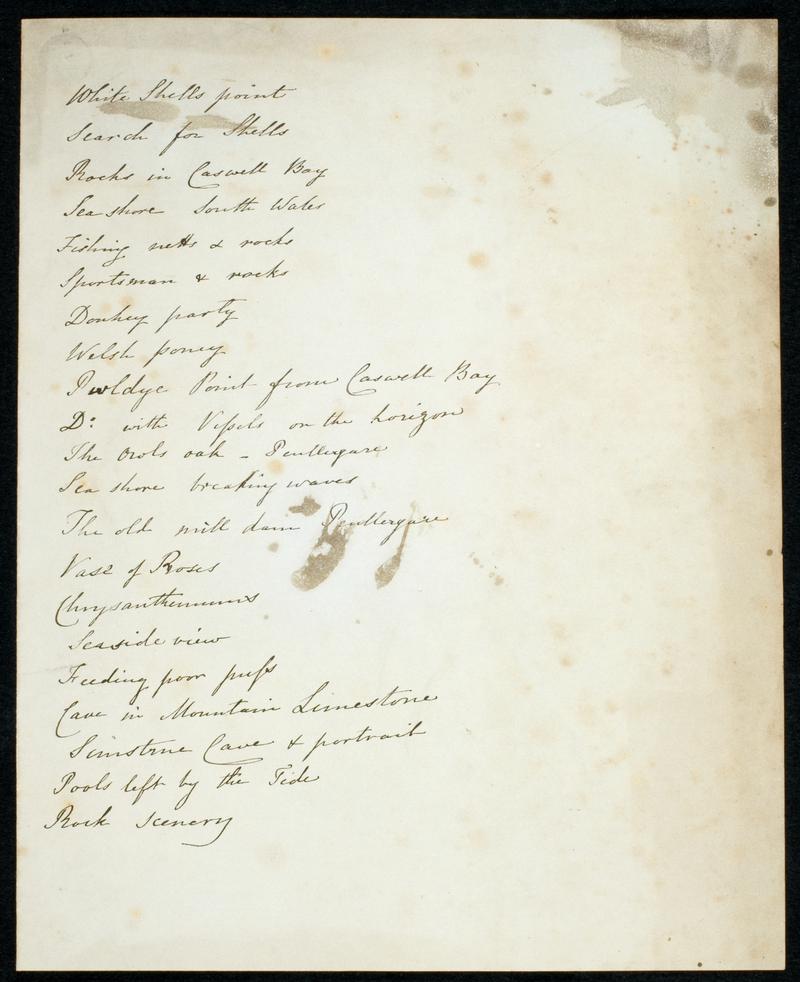 White Shells point
Search for Shells
Rocks in Caswell Bay
Sea shore South Wales
Fishing netts & rocks
Sportsman & rocks
Donkey party
Welsh poney
Pwldye Point from Caswell Bay
Do: with Vessels on the horizon
The Owls oak - Penllergare
Sea shore breaking waves
The old mill dam Penllergare
Vase of Roses
Chrysanthemums
Seaside view
Feeding poor puss
Cave in Mountain Limestone
Cave & portrait
Pools left by the Tide
Rock Scenery